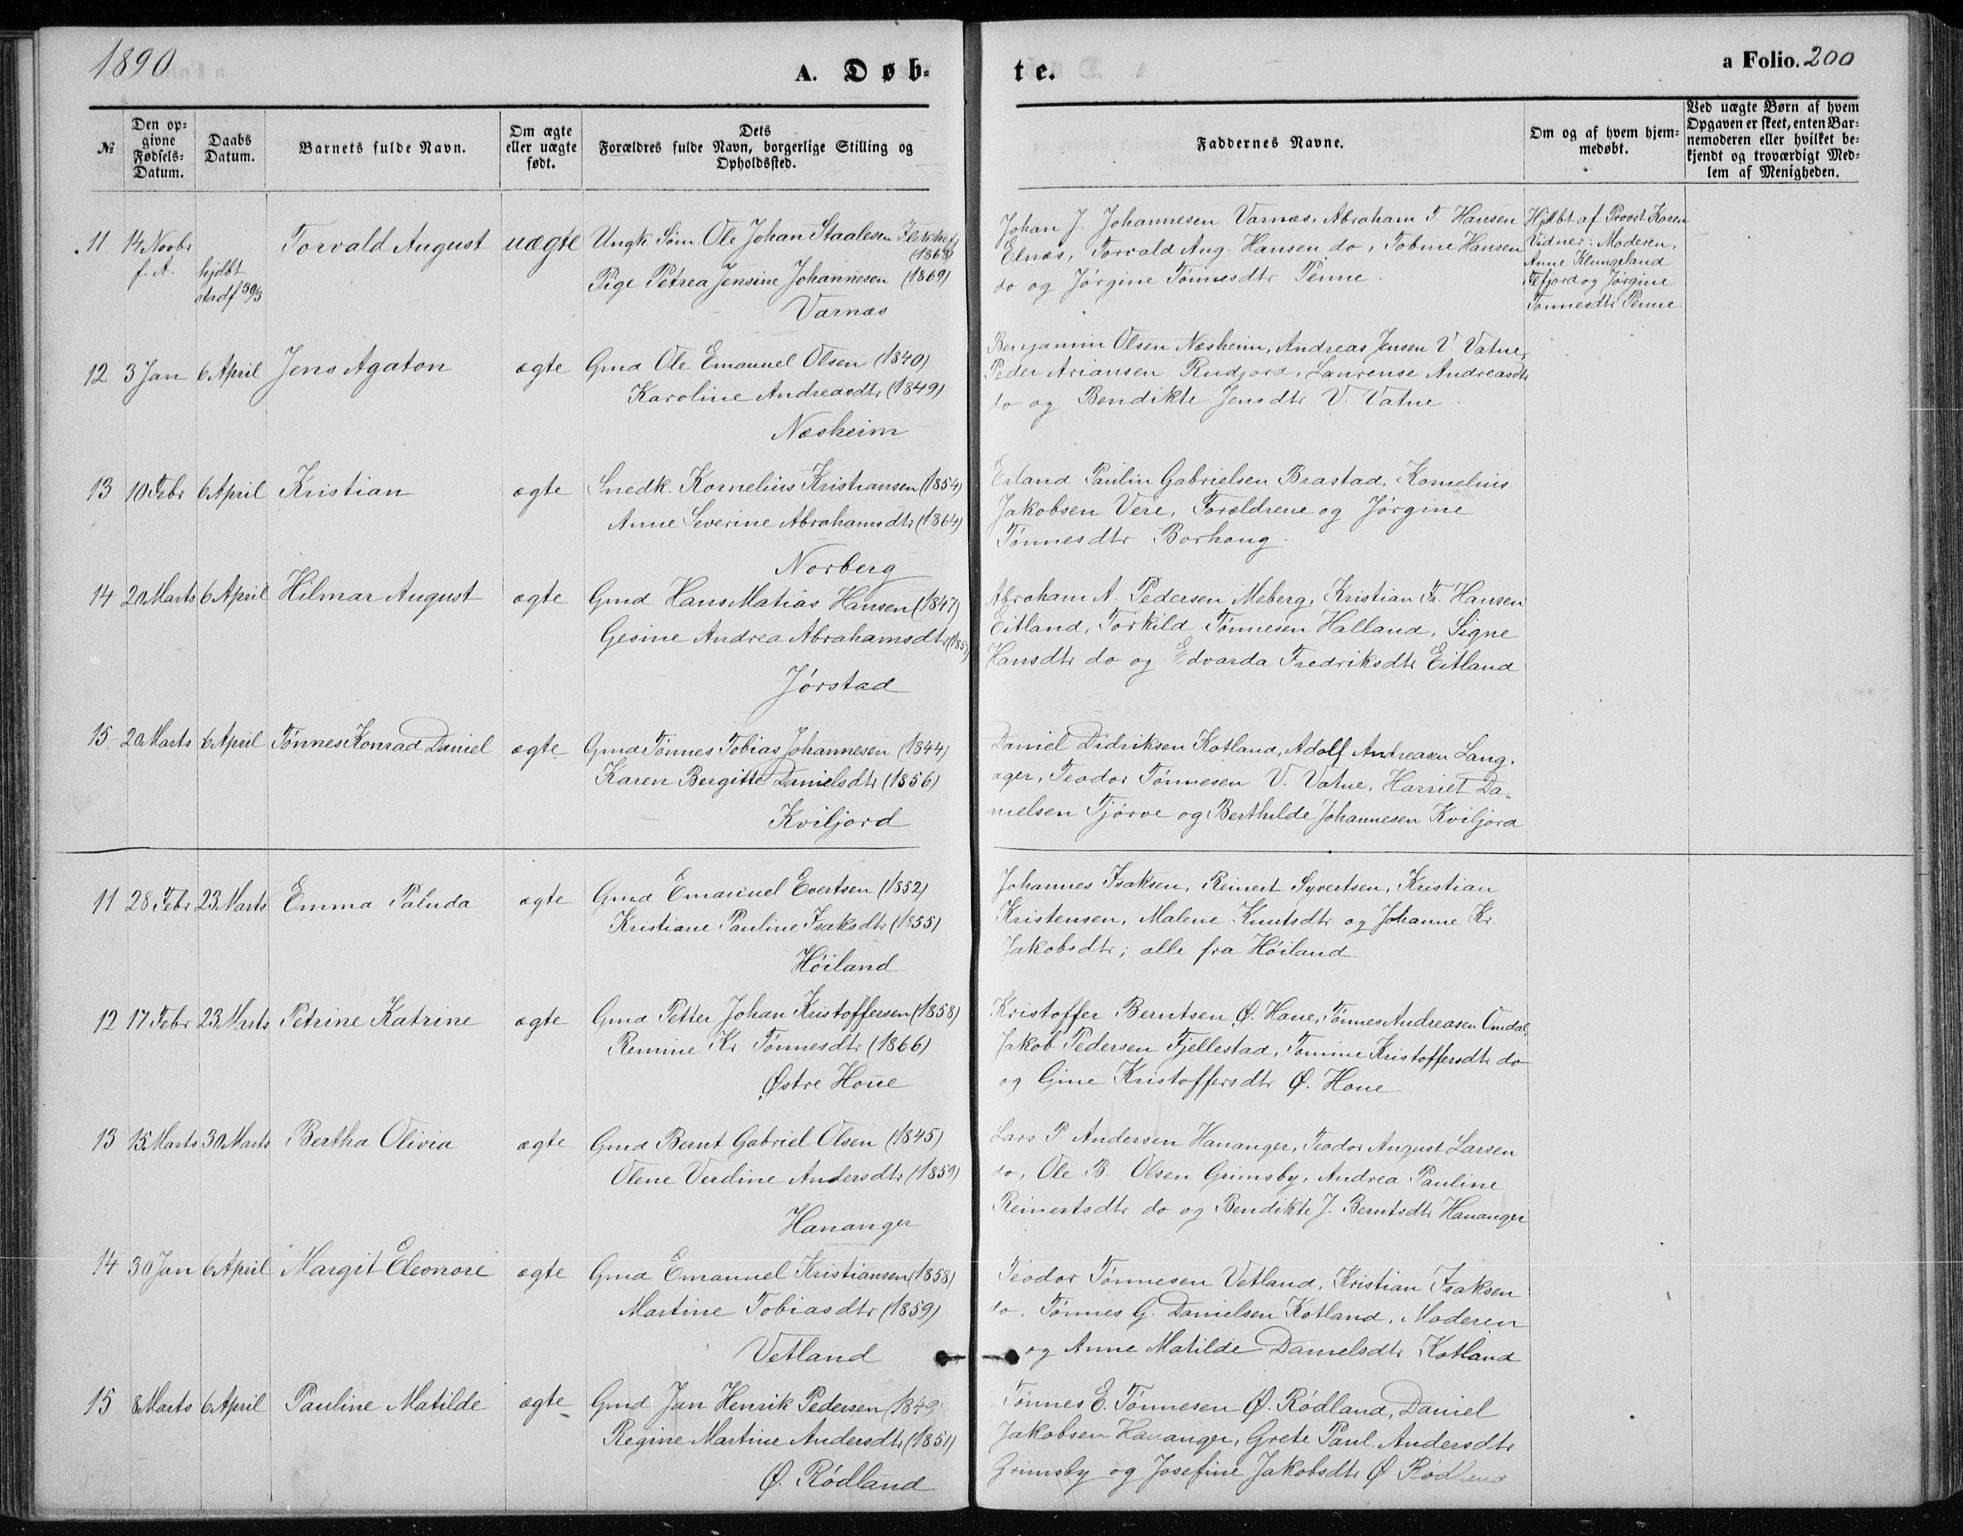 1890
A. Døb-
te.
a Folio. 200
№
Den op-
givne
Fødsels-
Datum.
Daabs
Datum.
Barnets fulde Navn.
Om ægte
eller uægte
født.
Dets
Forældres fulde Navn, borgerlige Stilling og
Opholdssted.
Faddernes Navne.
Om og af hvem hjem-
medøbt.
Ved uægte Børn af hvem
Opgaven er skeet, enten Bar-
nemoderen eller hvilket be-
kjendt og troværdigt Med-
lem af Menigheden.
11 14 Novbr Torvald August uægte Ungk. Søm. Ole Johan Staalesen
f. A. hjdbt (1868)
stadf 30/3 Pige Petrea Jensine Johannesen (1869)
Varnæs
Johan J. Johannesen Varnæs, Abraham T Hansen
Elnæs, Torvald Aug. Hansen do, Tobine Hansen
do og Jørgine Tønnesdtr Penne.
Hjdbt af Provst Koren
Vidner: Moderen,
Anne Klungeland
og Jørgine
Tønnesdtr Penne
12 3 Jan 6 April Jens Agaton ægte Gmd Ole Emanuel Olsen (1840)
Karoline Andreasdtr (1849)
Næsheim
Benjamin Olsen Næsheim, Andreas Jensen V. Vatne,
Peder Ariansen Rudjord, Laurense Andreasdtr
do og Bendikte Jensdtr V. Vatne.
13 10 Febr 6 April Kristian ægte Snedk. Kornelius Kristiansen (1854)
Anne Severine Abrahamsdtr (1864)
Norberg
Erland Paulin Gabrielsen Brastad, Kornelius
Jakobsen Vere, Forældrene og Jørgine
Tønnesdtr Borhaug.
14 20 Marts 6 April Hilmar August ægte Gmd Hans Matias Hansen (1847)
Gesine Andrea Abrahamsdtr
Jørstad
Abraham A. Pedersen Meberg, Kristian Fr. Hansen
Eitland, Torkild Tønnesen Halland, Signe
Hansdtr do og Edvarda Fredriksdtr Eitland
15 20 Marts 6 April Tønnes Konrad Daniel ægte Gmd Tønnes Tobias Johannesen (1844)
Karen Bergitte Danielsdtr (1856)
Kviljord
Daniel Didriksen Kotland, Adolf Andreasen Lang-
ager, Teodor Tønnesen V. Vatne, Harriet Da-
nielsen Tjørve og Berthilde Johannesen Kviljord
11 28 Febr 23 Marts Emma Paluda ægte Gmd Emanuel Evertsen (1852)
Kristiane Pauline Isaksdtr (1855)
Høiland
Johannes Isaksen, Reinert Syvertsen, Kristian
Kristensen, Malene Knutsdtr og Johanne Kr.
Jakobsdtr; alle fra Høiland
12 17 Febr 23 Marts Petrine Katrine ægte Gmd Petter Johan Kristoffersen (1858)
Remine Kr. Tønnesdtr (1866)
Østre Houe
Kristoffer Berntsen Ø. Haue, Tønnes Andreasen Omdal,
Jakob Pedersen Fjellestad, Tomine Kristoffersdtr do
og Gine Kristoffersdtr Ø. Houe
13 15 Marts 30 Marts Bertha Olivia ægte Gmd Bernt Gabriel Olsen (1845)
Olene Verdine Andersdtr (1859)
Hananger
Lars P. Andersen Hananger, Teodor August Larsen
do, Ole B. Olsen Grimsby, Andrea Pauline
Reinertsdtr do og Bendikte J. Berntsdtr Hananger
14 30 Jan 6 April Margit Eleonore ægte Gmd Emanuel Kristiansen (1858)
Martine Tobiasdtr (1859)
Vetland
Teodor Tønnesen Vetland, Kristian Isaksen
do, Tønnes G. Danielsen Kotland, Moderen
og Anne Matilde Danielsdtr Kotland
15 8 Marts 6 April Pauline Matilde ægte Gmd Jan Henrik Pedersen (1849)
Regine Martine Andersdtr (1851)
Ø. Rødland
Tønnes E. Tønnesen Ø. Rødland, Daniel
Jakobsen Hananger, Grete Paul. Andersdtr
Grimsby og Josefine Jakobsdtr Ø Rødland